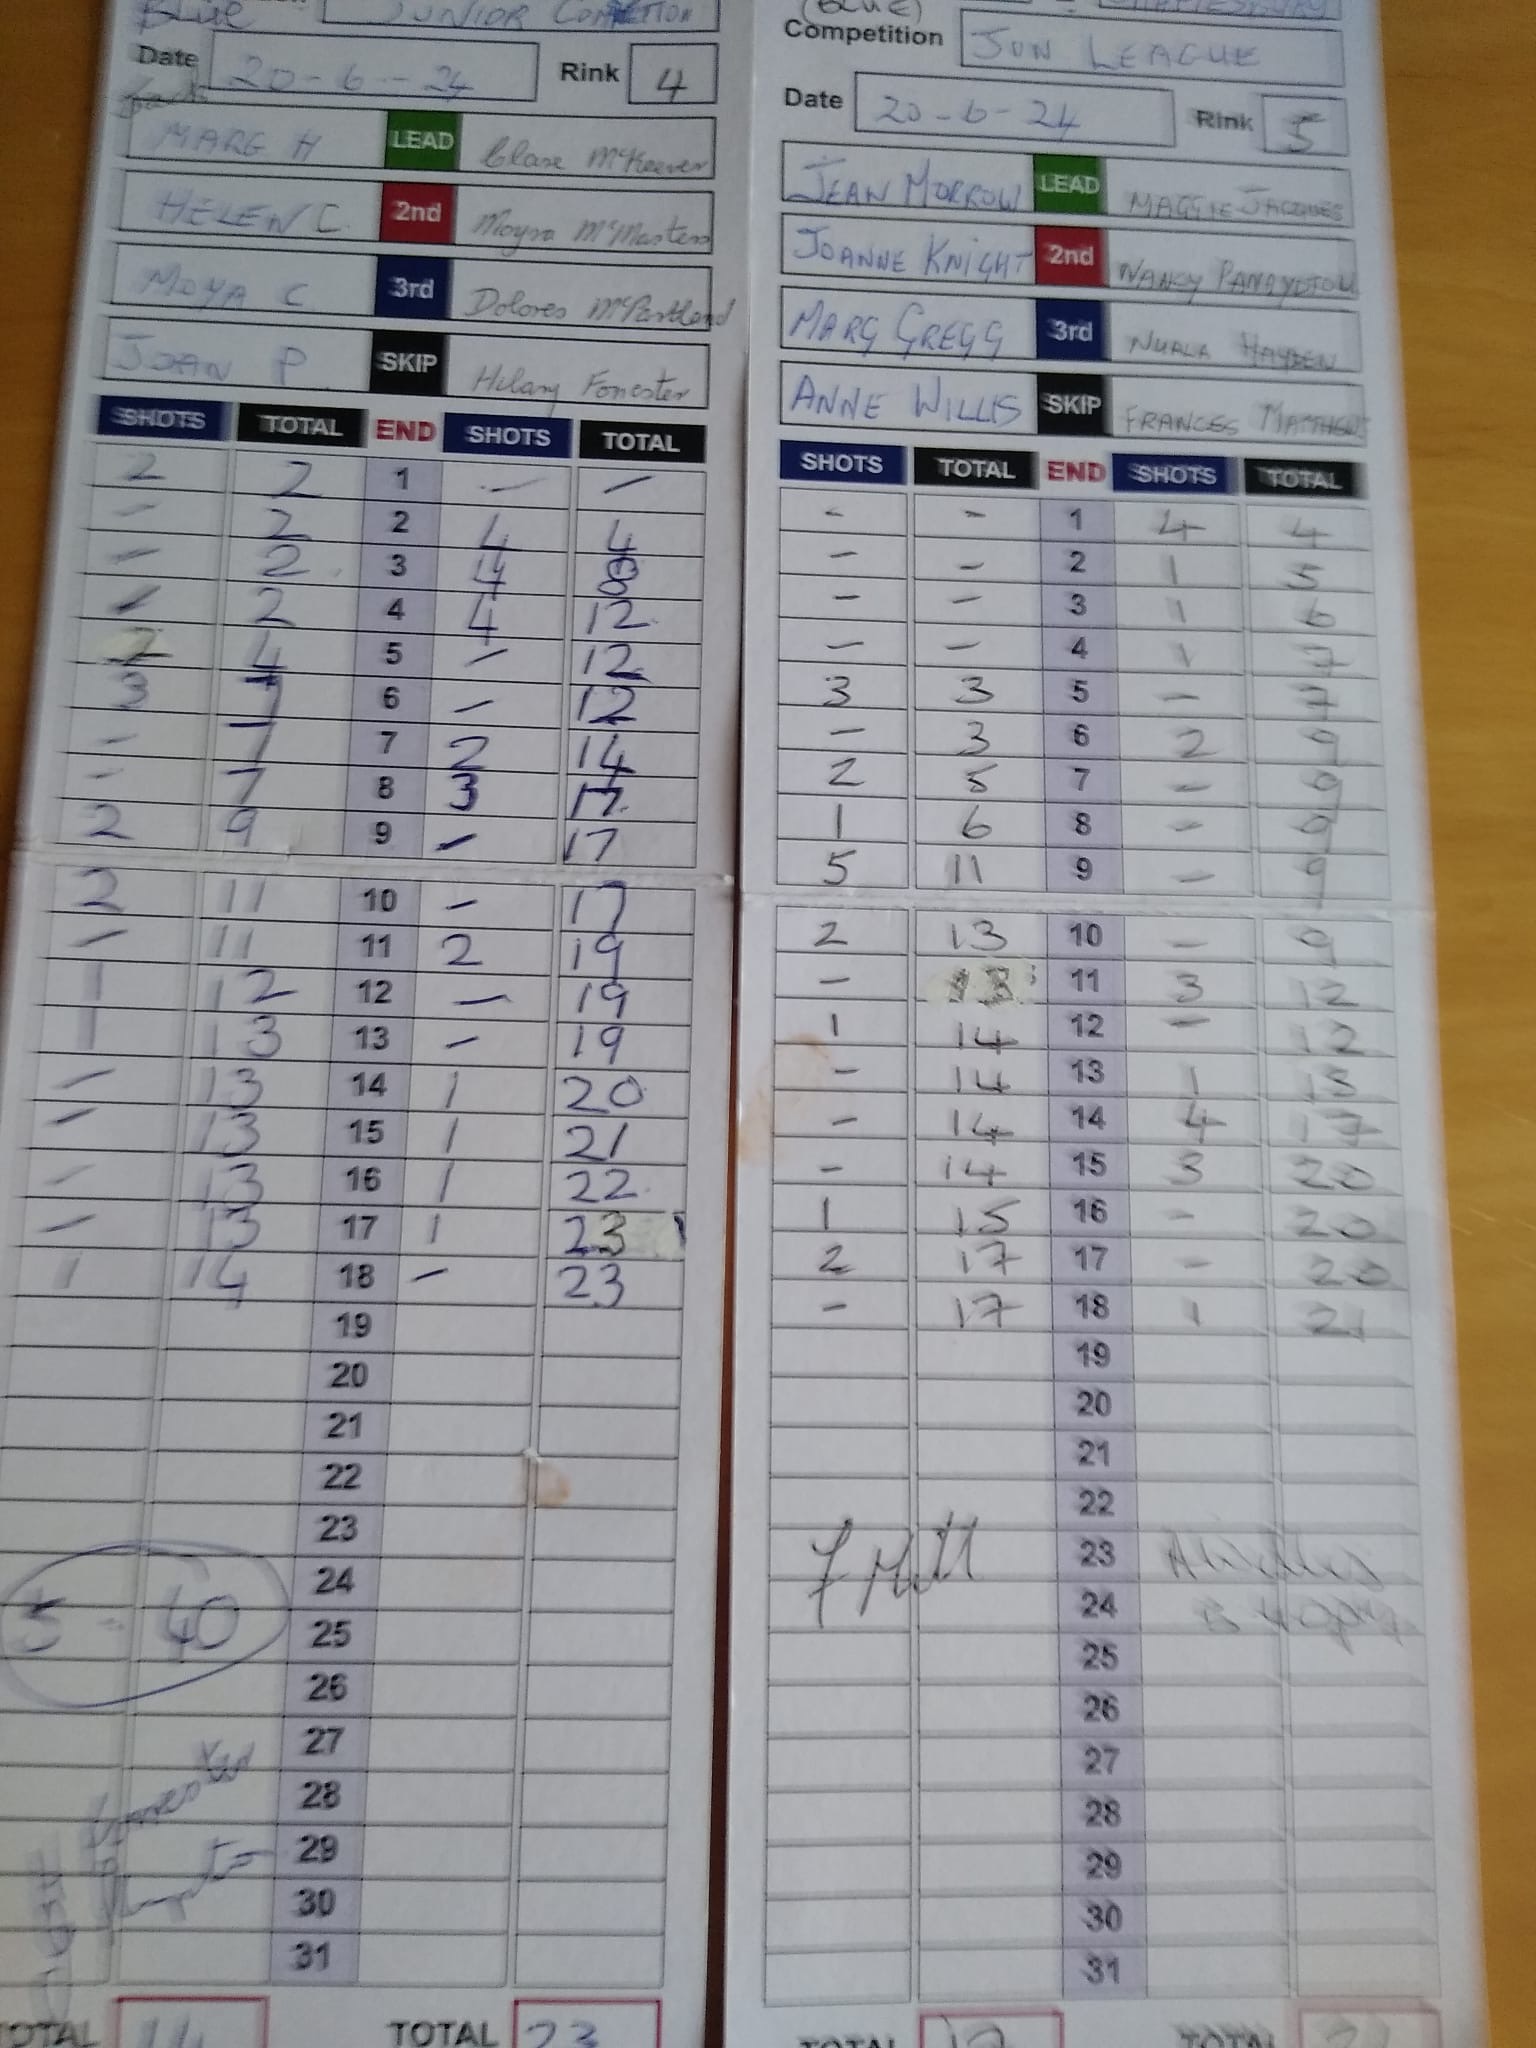 Blue JUNIOR COMPETITION
Date 20-6-24 Rink 4
MARG H LEAD Clare McKeever
HELEN C. 2nd Moyra McMasters
MOYA C 3rd Dolores McPartland
JOAN P. SKIP Hilary Forrester
SHOTS TOTAL END SHOTS TOTAL
2 2 1 - -
- 2 2 4 4
- 2 3 4 8
- 2 4 4 12
2 4 5 - 12
3 7 6 - 12
- 7 7 2 14
- 7 8 3 17
2 9 9 - 17
2 11 10 - 17
- 11 11 2 19
1 12 12 - 19
1 13 13 - 19
- 13 14 1 20
- 13 15 1 21
- 13 16 1 22
- 13 17 1 23
1 14 18 - 23
19
20
21
22
23
24
5-40 25
26
27
28
29
30
31
TOTAL 14 TOTAL 23
(BLUE)
Competition JUN LEAGUE
Date 20-6-24 Rink 5
JEAN MORROW LEAD MAGGIE JACQUES
JOANNE KNIGHT 2nd NANCY PANAYOTOU
MARG GREGG 3rd NUALA HAYDEN
ANNE WILLIS SKIP FRANCES
SHOTS TOTAL END SHOTS TOTAL
- - 1 4 4
- - 2 1 5
- - 3 1 6
- - 4 1 7
3 3 5 - 7
- 3 6 2 9
2 5 7 - 9
1 6 8 - 9
5 11 9 - 9
2 13 10 - 9
- 13 11 3 12
1 14 12 - 12
- 14 13 1 13
- 14 14 4 17
- 14 15 3 20
1 15 16 - 20
2 17 17 - 20
- 17 18 1 21
19
20
21
22
23
24
25
26
27
28
29
30
31
TOTAL 17 TOTAL 21